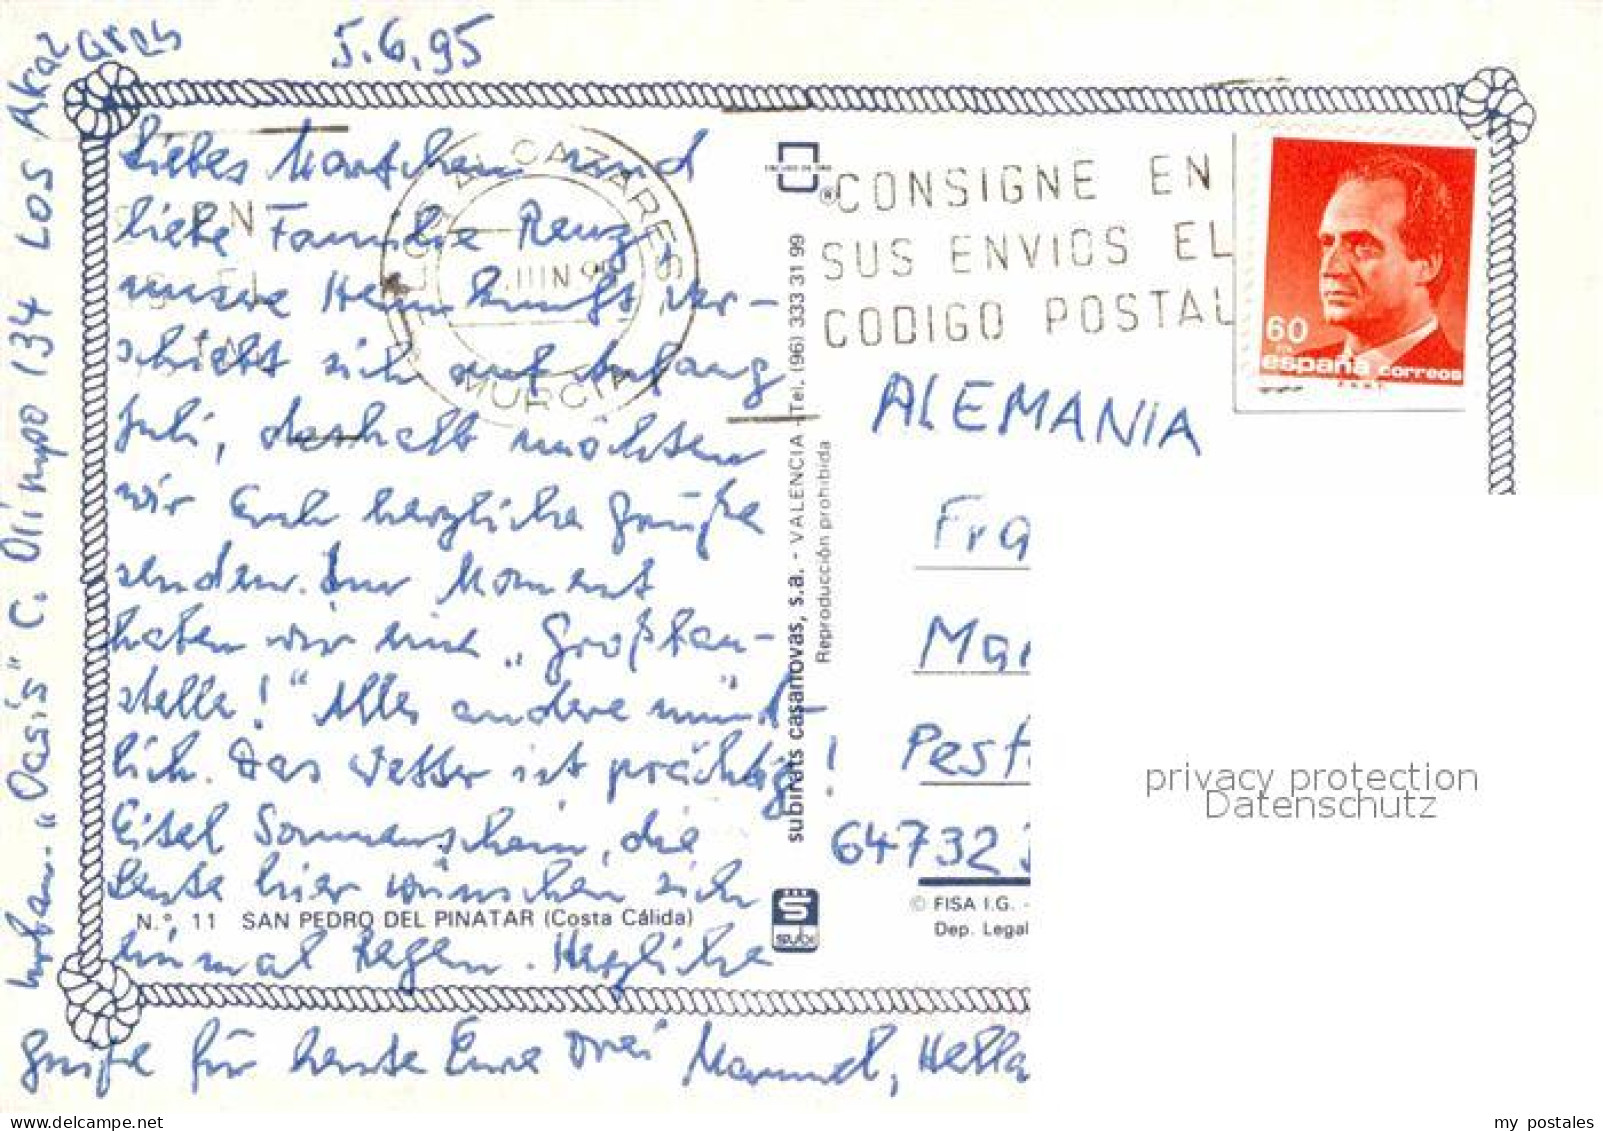 5.6.95
Urban. "Oasis" C. Olimpo 134 LOS Alcazares
Liebes und
liebe Familie Renz,
unsere Heimkunft ver-
schiebt sich auf Anfang
Juli, deshalb möchten
wir Euch herzliche Grüße
senden. Im Moment
haben wir eine „Großbau-
stelle!" Alles andere münd-
lich. Das Wetter ist prächtig!
Eitel Sonnenschein, die
Leute hier wünschen sich
N.º 11 SAN PEDRO DEL PINATAR (Costa Cálida)
einmal Regen. Herzliche
Grüße für heute Eure Drei Manuel, Hella
LOS ALCAZARES
MURCIA
subirats casanovas, s.a. - VALENCIA - Tel. (96) 333 31 99
Reproducción prohibida
CONSIGNE EN
SUS ENVIOS EL
CODIGO POSTAL
60
españa correos
ALEMANIA
Fra
Mar
Pest
64732
© FISA I.G. -
Dep. Legal
subi
privacy protection
Datenschutz
my postales